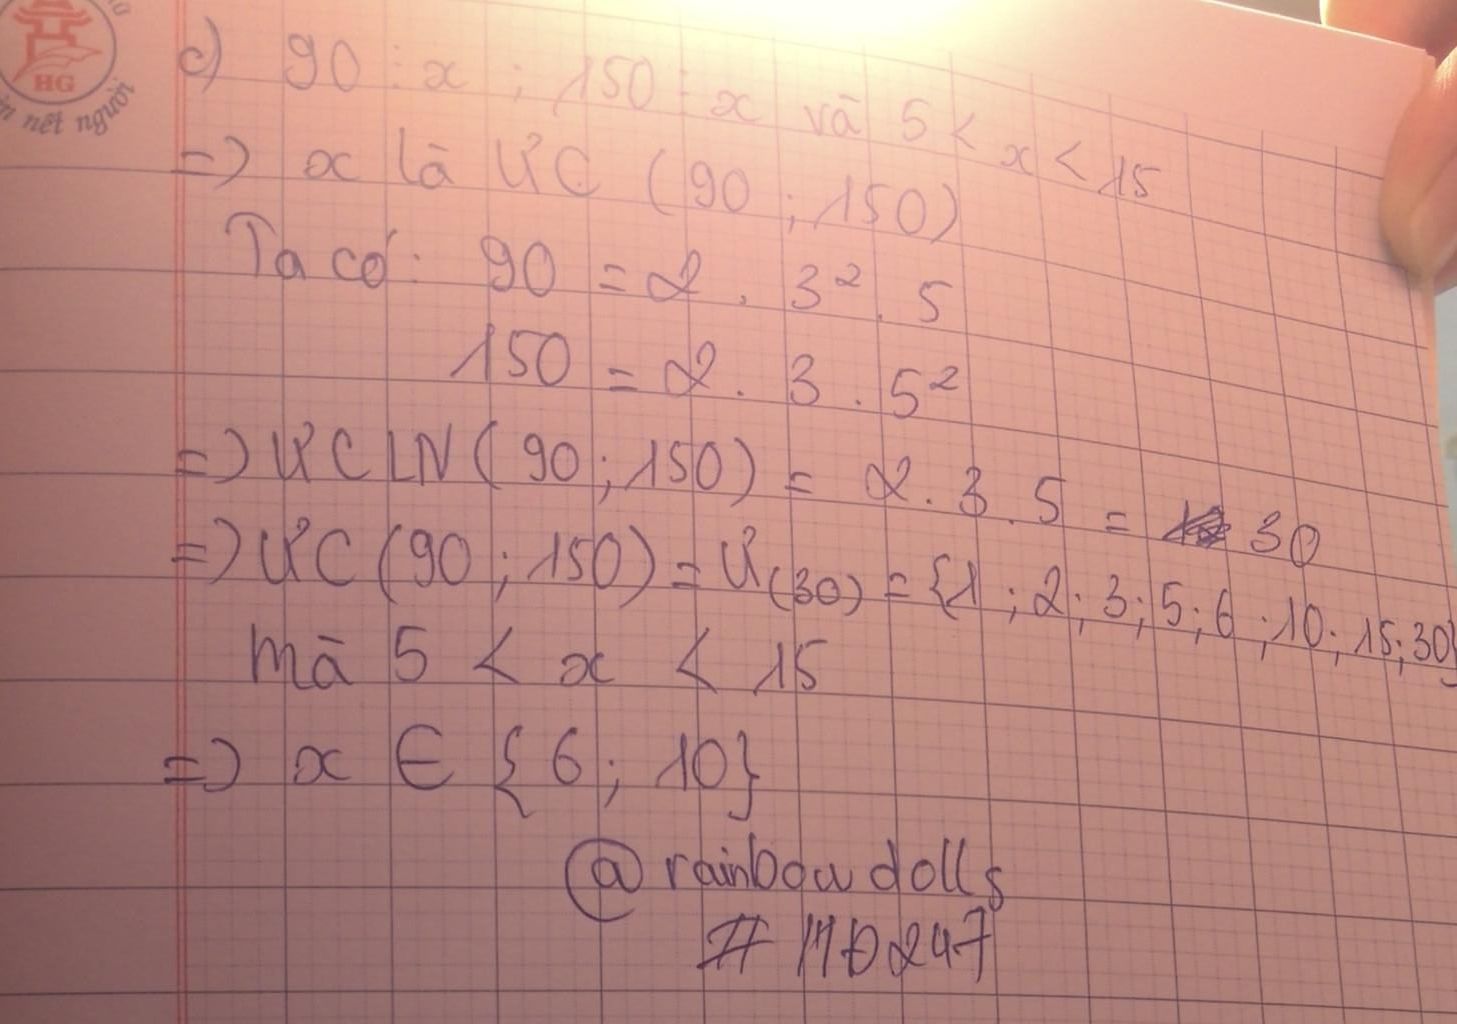 HG
nét người
c) 90 ⋮ x ; 150 ⋮ x và 5 < x < 15
=> x là ƯC (90 ; 150)
Ta có: 90 = 2 . 3² . 5
150 = 2 . 3 . 5²
=> ƯCLN ( 90 ; 150 ) = 2 . 3 . 5 = 30
=> ƯC (90 ; 150) = Ư(30) = {1 ; 2 ; 3 ; 5 ; 6 ; 10 ; 15 ; 30}
mà 5 < x < 15
=> x ∈ { 6 ; 10}
@rainbow dolls
# HD247